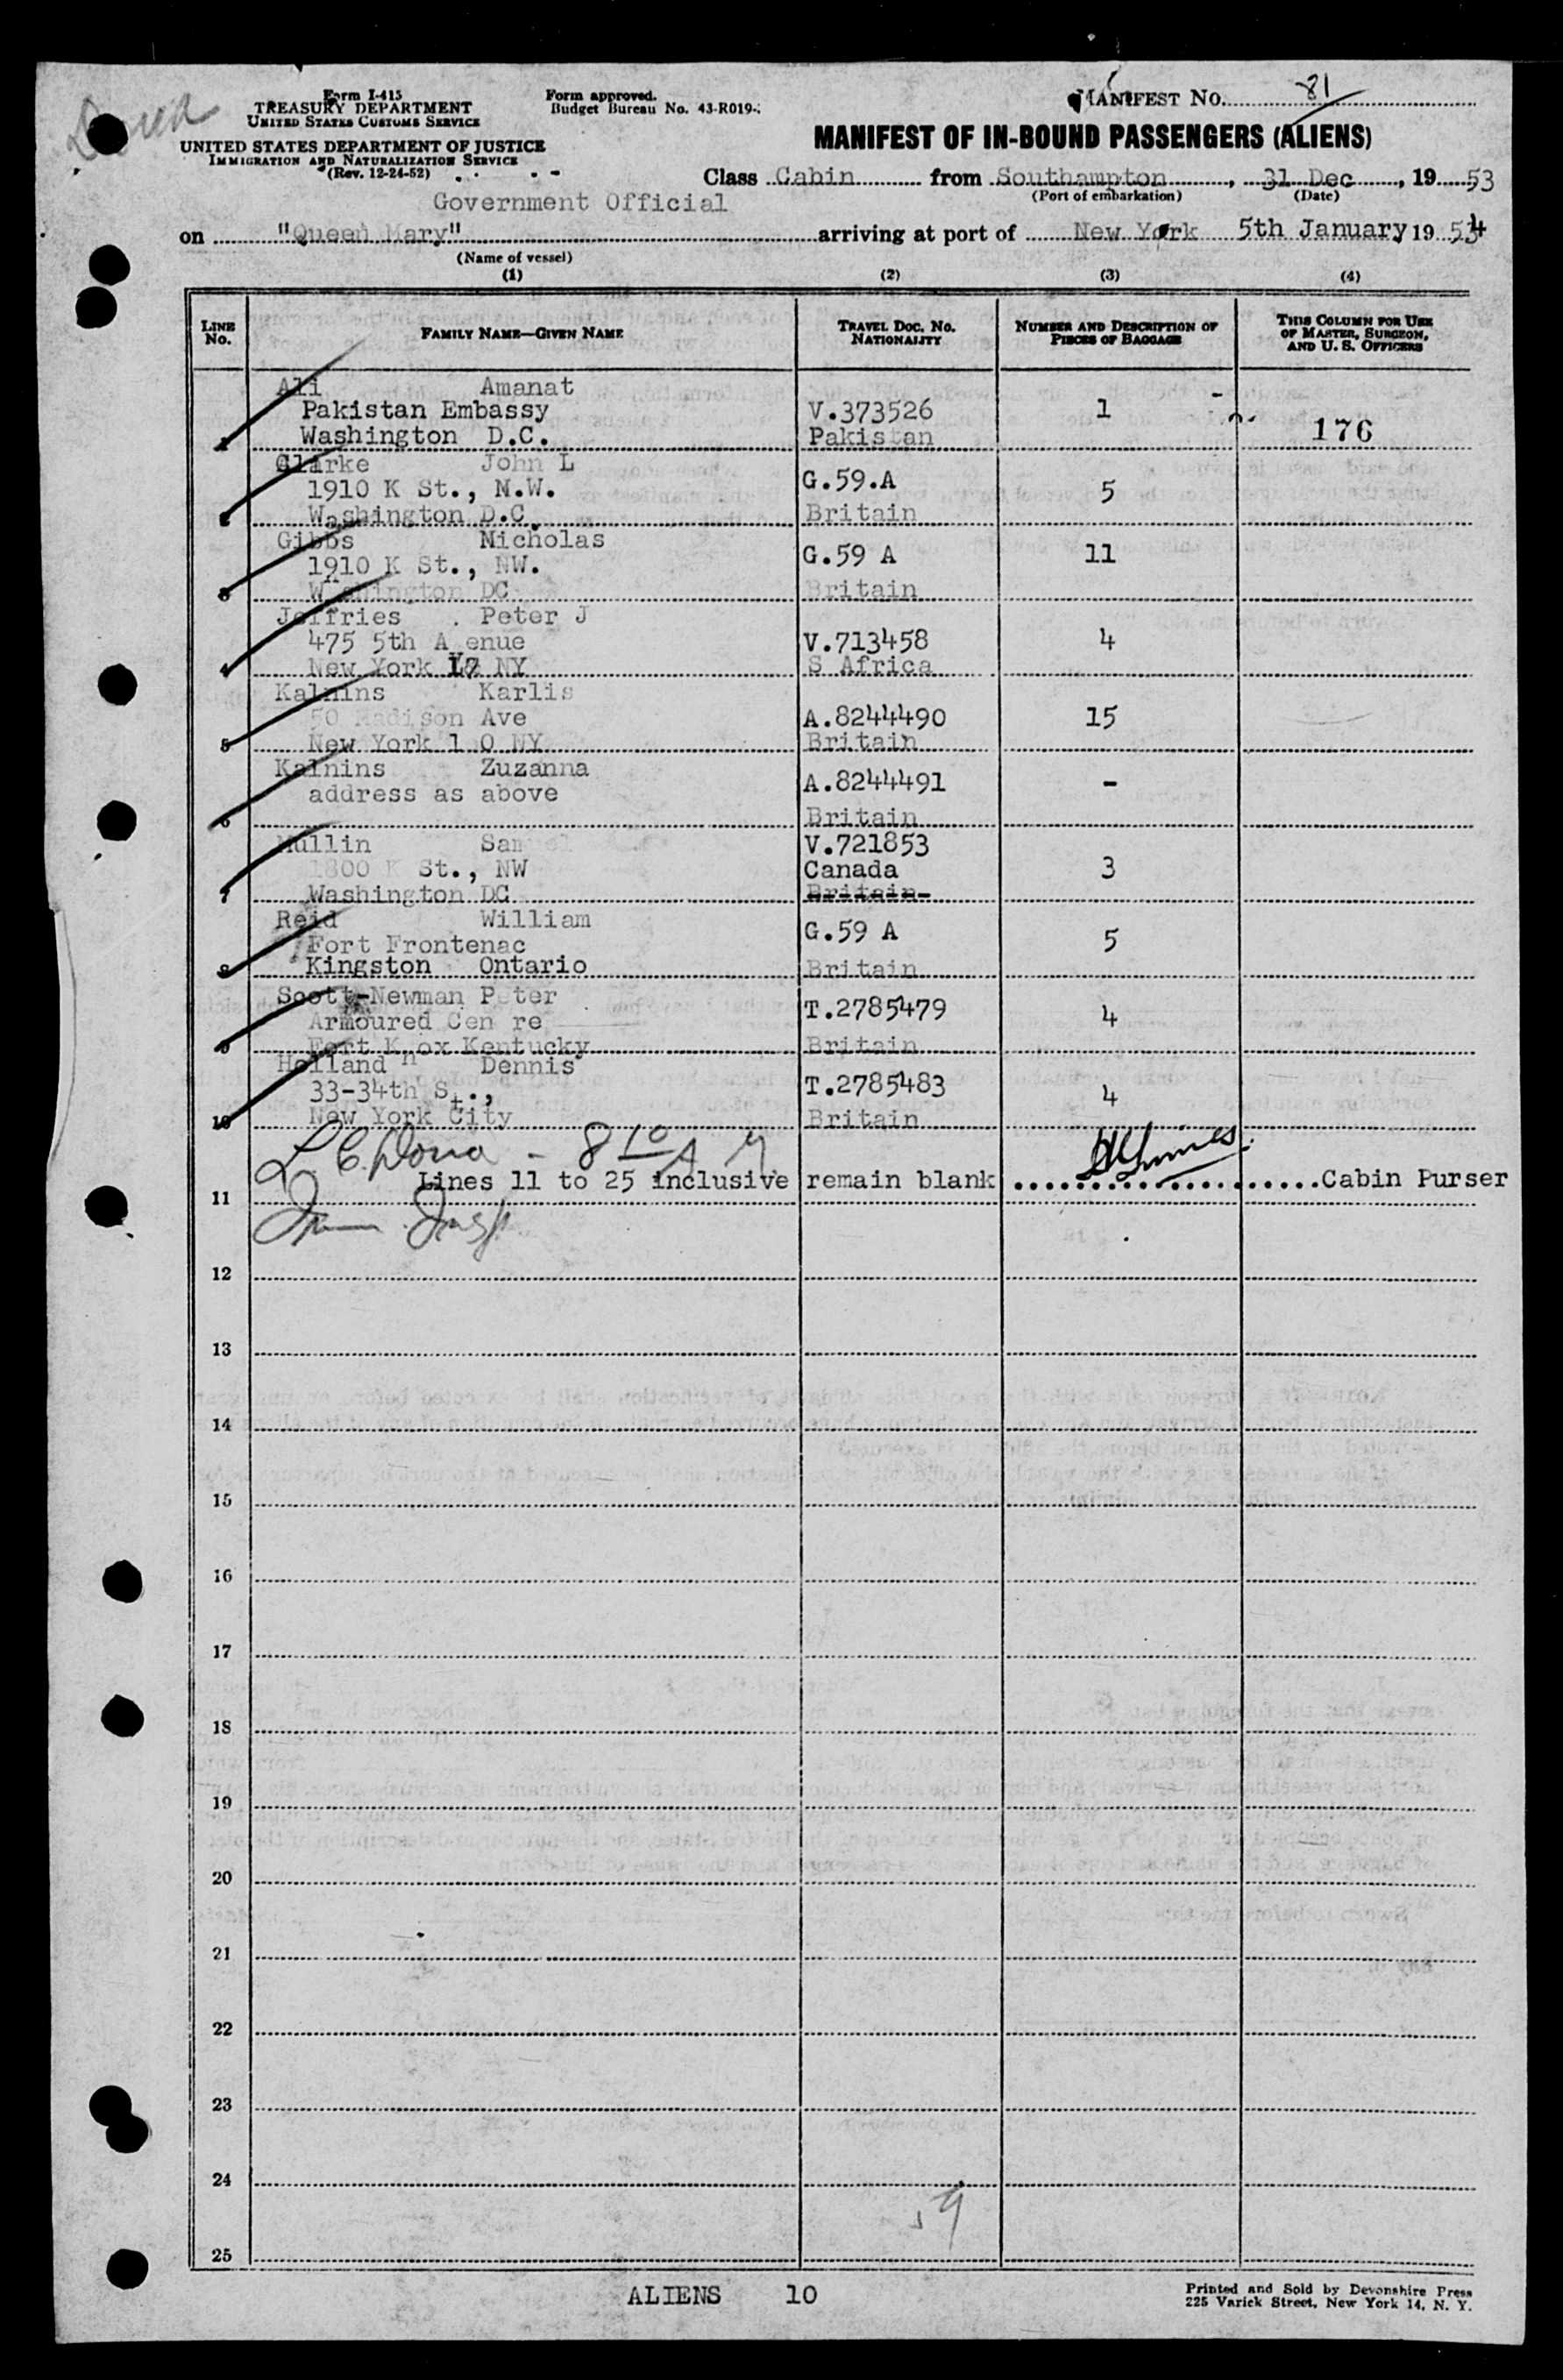 Form I-415
TREASURY DEPARTMENT
UNITED STATES CUSTOMS SERVICE
UNITED STATES DEPARTMENT OF JUSTICE
IMMIGRATION AND NATURALIZATION SERVICE
(Rev. 12-24-52)
Form approved.
Budget Bureau No. 43-R019-
MANIFEST No. 81
MANIFEST OF IN-BOUND PASSENGERS (ALIENS)
Class Cabin from Southampton, 31 Dec, 1953
(Port of embarkation) (Date)
Government Official
on "Queen Mary" arriving at port of New York 5th January 1954
(Name of vessel)
(1) (2) (3) (4)
LINE No. FAMILY NAME—GIVEN NAME TRAVEL DOC. NO. NATIONALITY NUMBER AND DESCRIPTION OF PIECES OF BAGGAGE THIS COLUMN FOR USE OF MASTER, SURGEON, AND U. S. OFFICERS
Ali Amanat
Pakistan Embassy V.373526 1
1 Washington D.C. Pakistan 176
Clarke John L
1910 K St., N.W. G.59.A 5
2 Washington D.C. Britain
Gibbs Nicholas
1910 K St., NW. G.59 A 11
3 Washington DC Britain
Jeffries Peter J
475 5th A enue V.713458 4
4 New York 17 NY S Africa
Kalnins Karlis
50 Madison Ave A.8244490 15
5 New York 1 0 NY Britain
Kalnins Zuzanna
address as above A.8244491 -
6 Britain
Mullin Samuel V.721853
1800 K St., NW Canada 3
7 Washington DC Britain
Reid William
Fort Frontenac G.59 A 5
8 Kingston Ontario Britain
Scott-Newman Peter
Armoured Cen re T.2785479 4
9 Fort Knox Kentucky Britain
Holland Dennis
33-34th St., T.2785483 4
10 New York City Britain
Lines 11 to 25 inclusive remain blank ....................Cabin Purser
11
12
13
14
15
16
17
18
19
20
21
22
23
24
25
ALIENS 10
Printed and Sold by Devonshire Press
225 Varick Street, New York 14, N. Y.